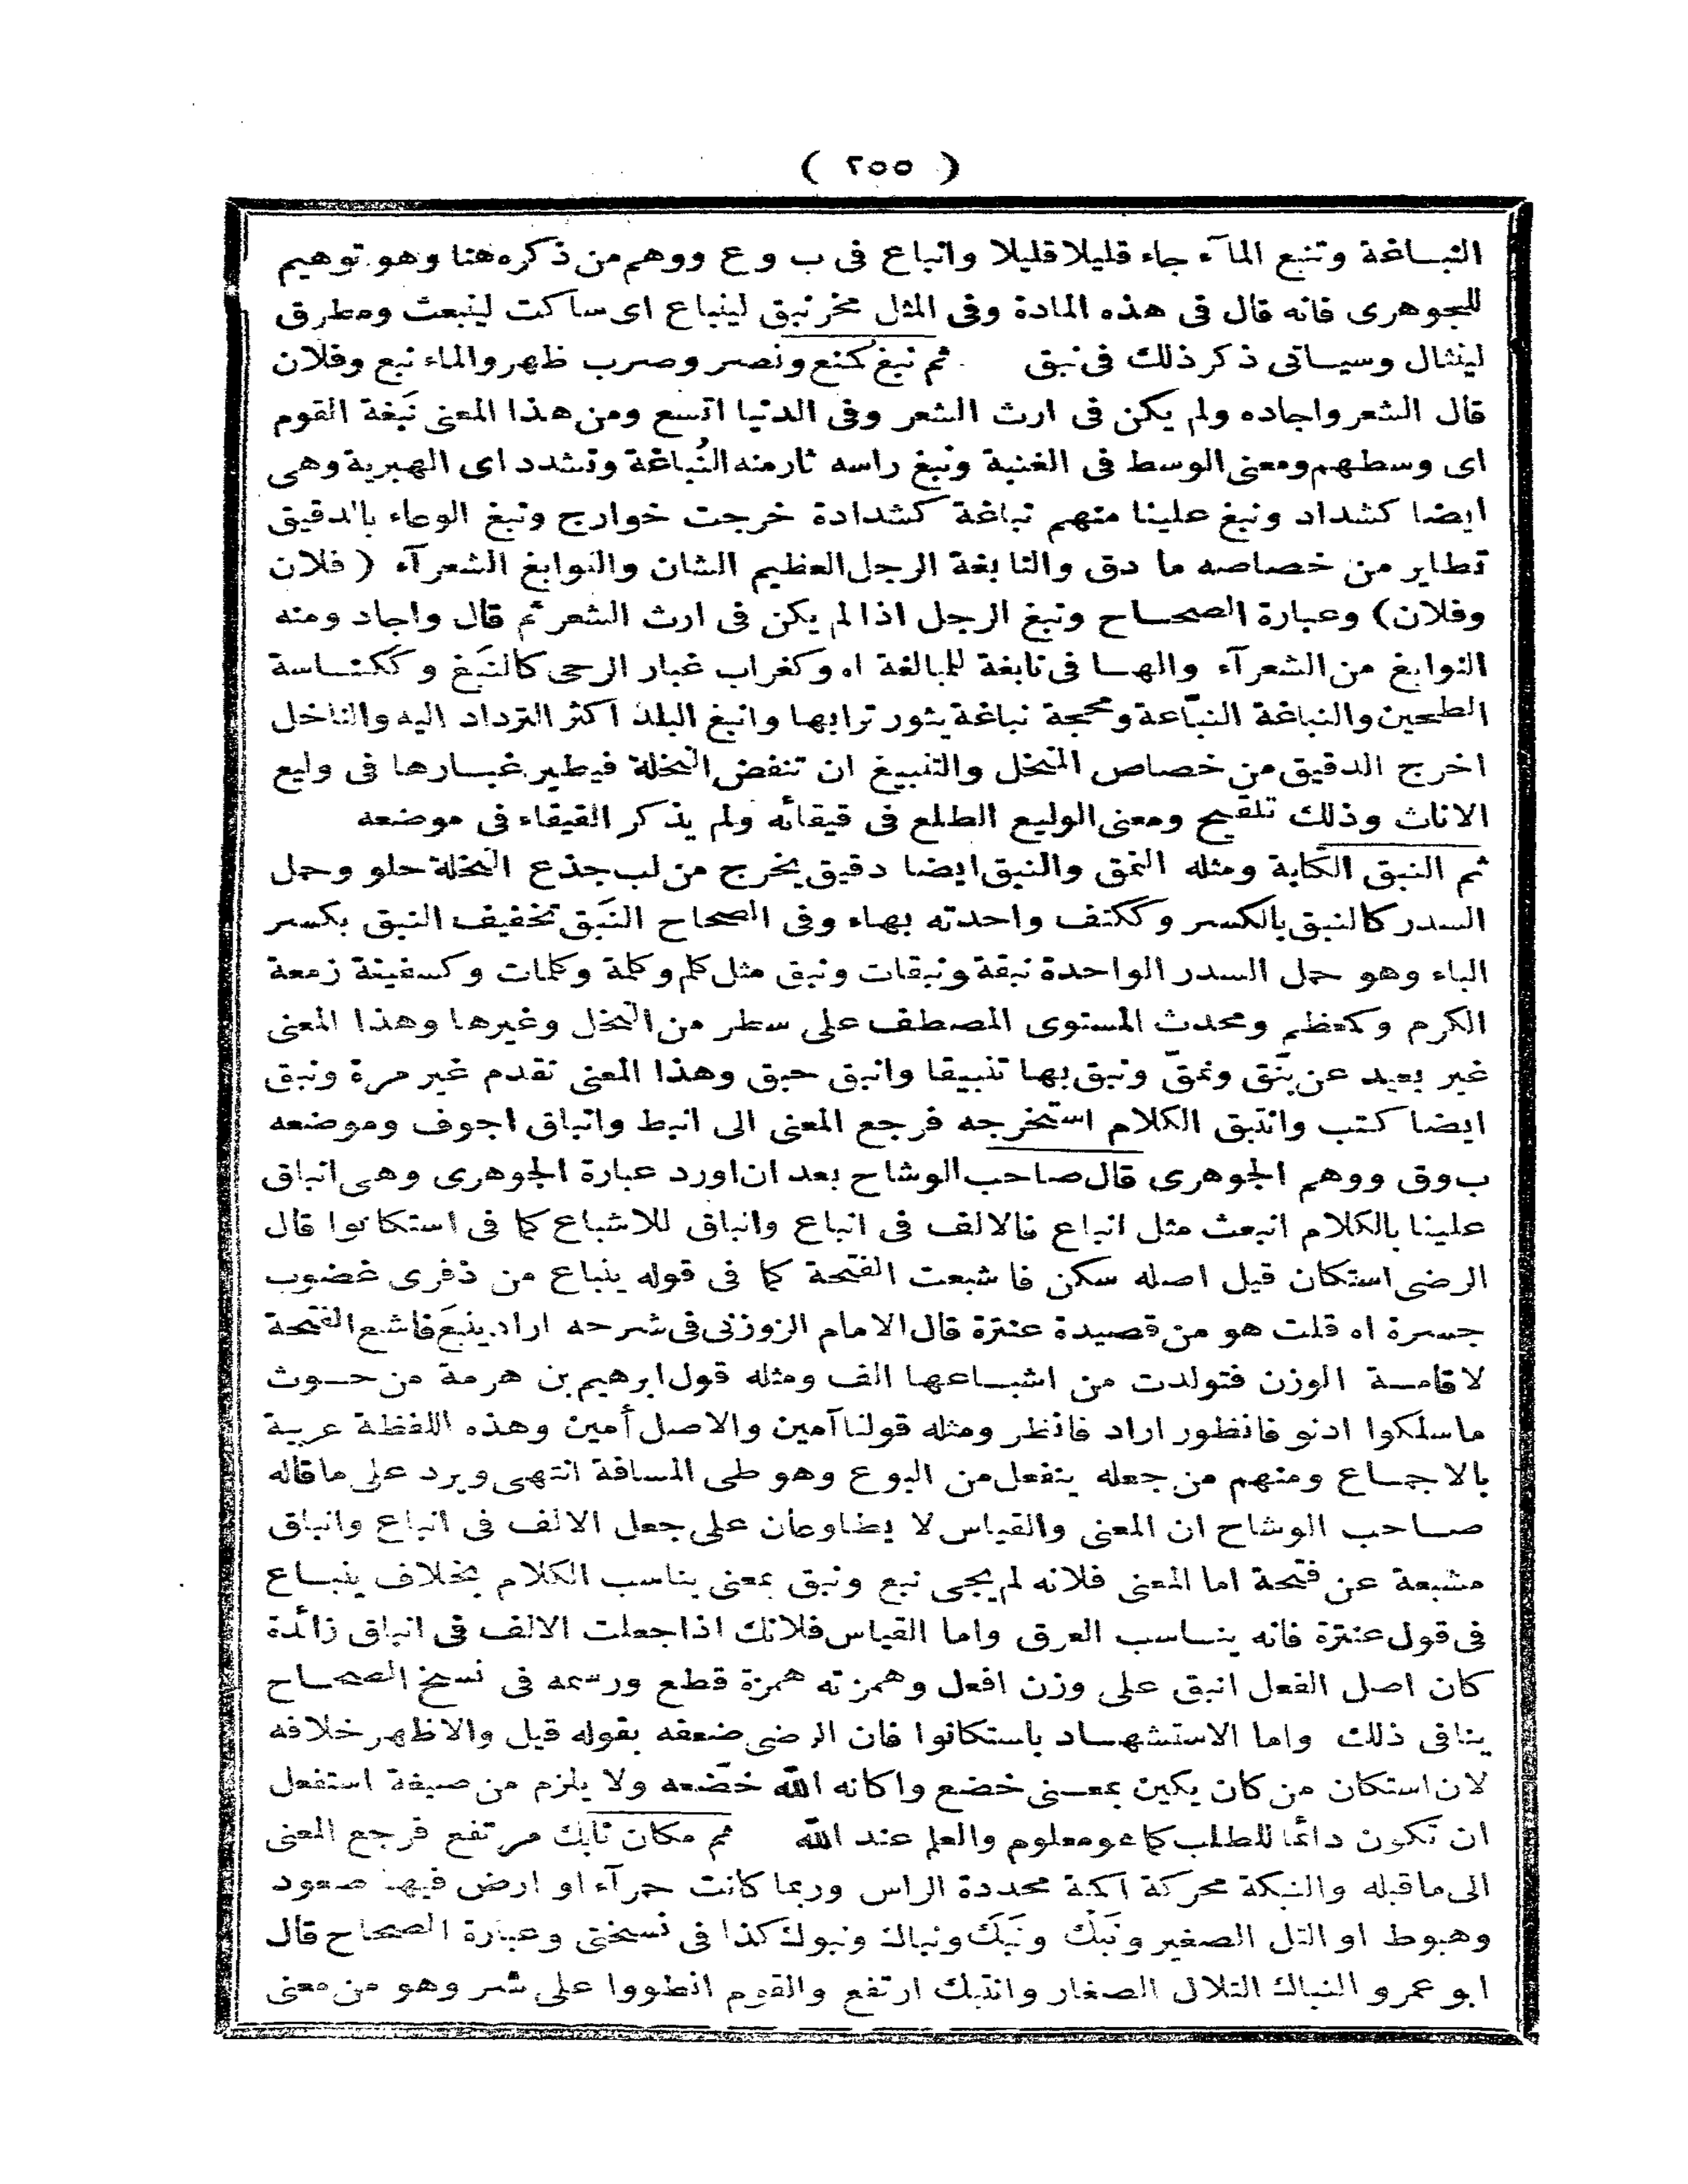 ( ٢٥٥ )
النبـاغة وتنبع المآء جاء قليلا قليلا وانباع فى ب و ع ووهم من ذكره هنا وهو توهيم
للجوهرى فانه قال فى هذه المادة وفى المثل مخرنبق لينباع اى ساكت لينبعث ومطرق
لينثال وسيـاتى ذكر ذلك فى نبق ثم نبغ كمنع ونصر وضرب ظهر والماء نبع وفلان
قال الشعر واجاده ولم يكن فى ارث الشعر وفى الدنيا اتسع ومن هذا المعنى نَبغة القوم
اى وسطهم ومعنى الوسط فى الغنية ونبغ راسه ثار منه النُباغة وتشدد اى الهبرية وهى
ايضا كشداد ونبغ علينا منهم نباغة كشدادة خرجت خوارج ونبغ الوعاء بالدقيق
تطاير من خصاصه ما دق والنابغة الرجل العظيم الشان والنوابغ الشعرآء ( فلان
وفلان) وعبارة الصحـاح ونبغ الرجل اذا لم يكن فى ارث الشعر ثم قال واجاد ومنه
النوابغ من الشعرآء والهـا فى نابغة للمبالغة اه وكغراب غبار الرحى كالنَبغ وككنـاسة
الطحين والنباغة النبّاعة ومحجة نباغة يثور ترابها وانبغ البلد اكثر الترداد اليه والناخل
اخرج الدقيق من خصاص المنخل والتنبيغ ان تنفض النخلة فيطير غبـارها فى وليع
الاناث وذلك تلقيح ومعنى الوليع الطلع فى قيقأئه ولم يذكر القيقاء فى موضعه
ثم النبق الكتابة ومثله النمق والنبق ايضا دقيق يخرج من لب جذع النخلة حلو وحمل
السدر كالنبق بالكسر وككتف واحدته بهاء وفى الصحاح النَبق تخفيف النبق بكسر
الباء وهو حمل السدر الواحدة نبقة ونبقات ونبق مثل كلم وكلمة وكلمات وكسفينة زمعة
الكرم وكمعظم ومحدث المستوى المصطف على سطر من النخل وغيرها وهذا المعنى
غير بعيد عن بنّق ونمقّ ونبق بها تنبيقا وانبق حبق وهذا المعنى تقدم غير مرة ونبق
ايضا كتب وانتبق الكلام استخرجه فرجع المعنى الى انبط وانباق اجوف وموضعه
ب وق ووهم الجوهرى قال صاحب الوشاح بعد ان اورد عبارة الجوهرى وهى انباق
علينا بالكلام انبعث مثل انباع فالالف فى انباع وانباق للاشباع كما فى استكانوا قال
الرضى استكان قيل اصله سكن فاشبعت الفتحة كما فى قوله ينباع من ذفرى غضوب
جسرة اه قلت هو من قصيدة عنترة قال الامام الزوزنى فى شرحه اراد ينبَع فاشبع الفتحة
لاقامـة الوزن فتولدت من اشبـاعها الف ومثله قول ابرهيم بن هرمة من حـوث
ما سلكوا ادنو فانظور اراد فانظر ومثله قولنا آمين والاصل أمين وهذه اللفظة عربية
بالاجمـاع ومنهم من جعله ينفعل من البوع وهو طى المسافة انتهى ويرد على ما قاله
صـاحب الوشاح ان المعنى والقياس لا يطاوعان على جعل الالف فى انباع وانباق
مشبعة عن فتحة اما المعنى فلانه لم يجى نبع ونبق بمعنى يناسب الكلام بخلاف ينبـاع
فى قول عنترة فانه ينـاسب العرق واما القياس فلانك اذا جعلت الالف فى انباق زائدة
كان اصل الفعل انبق على وزن افعل وهمزته همزة قطع ورسمه فى نسخ الصحـاح
ينافى ذلك واما الاستشهـاد باستكانوا فان الرضى ضعفه بقوله قيل والاظهر خلافه
لان استكان من كان يكين بمعـنى خضع واكانه الله خضّعه ولا يلزم من صيغة استفعل
ان تكون دائما للطلب كما هو معلوم والعلم عند الله ثم مكان نابك مرتفع فرجع المعنى
الى ما قبله والنبكة محركة اكمة محددة الراس وربما كانت حمرآء او ارض فيها صعود
وهبوط او التل الصغير ونَبْك ونَبَك ونباك ونبوك كذا فى نسختى وعبارة الصحاح قال
ابو عمرو النباك التلال الصغار وانتبك ارتفع والقوم انطووا على شر وهو من معنى